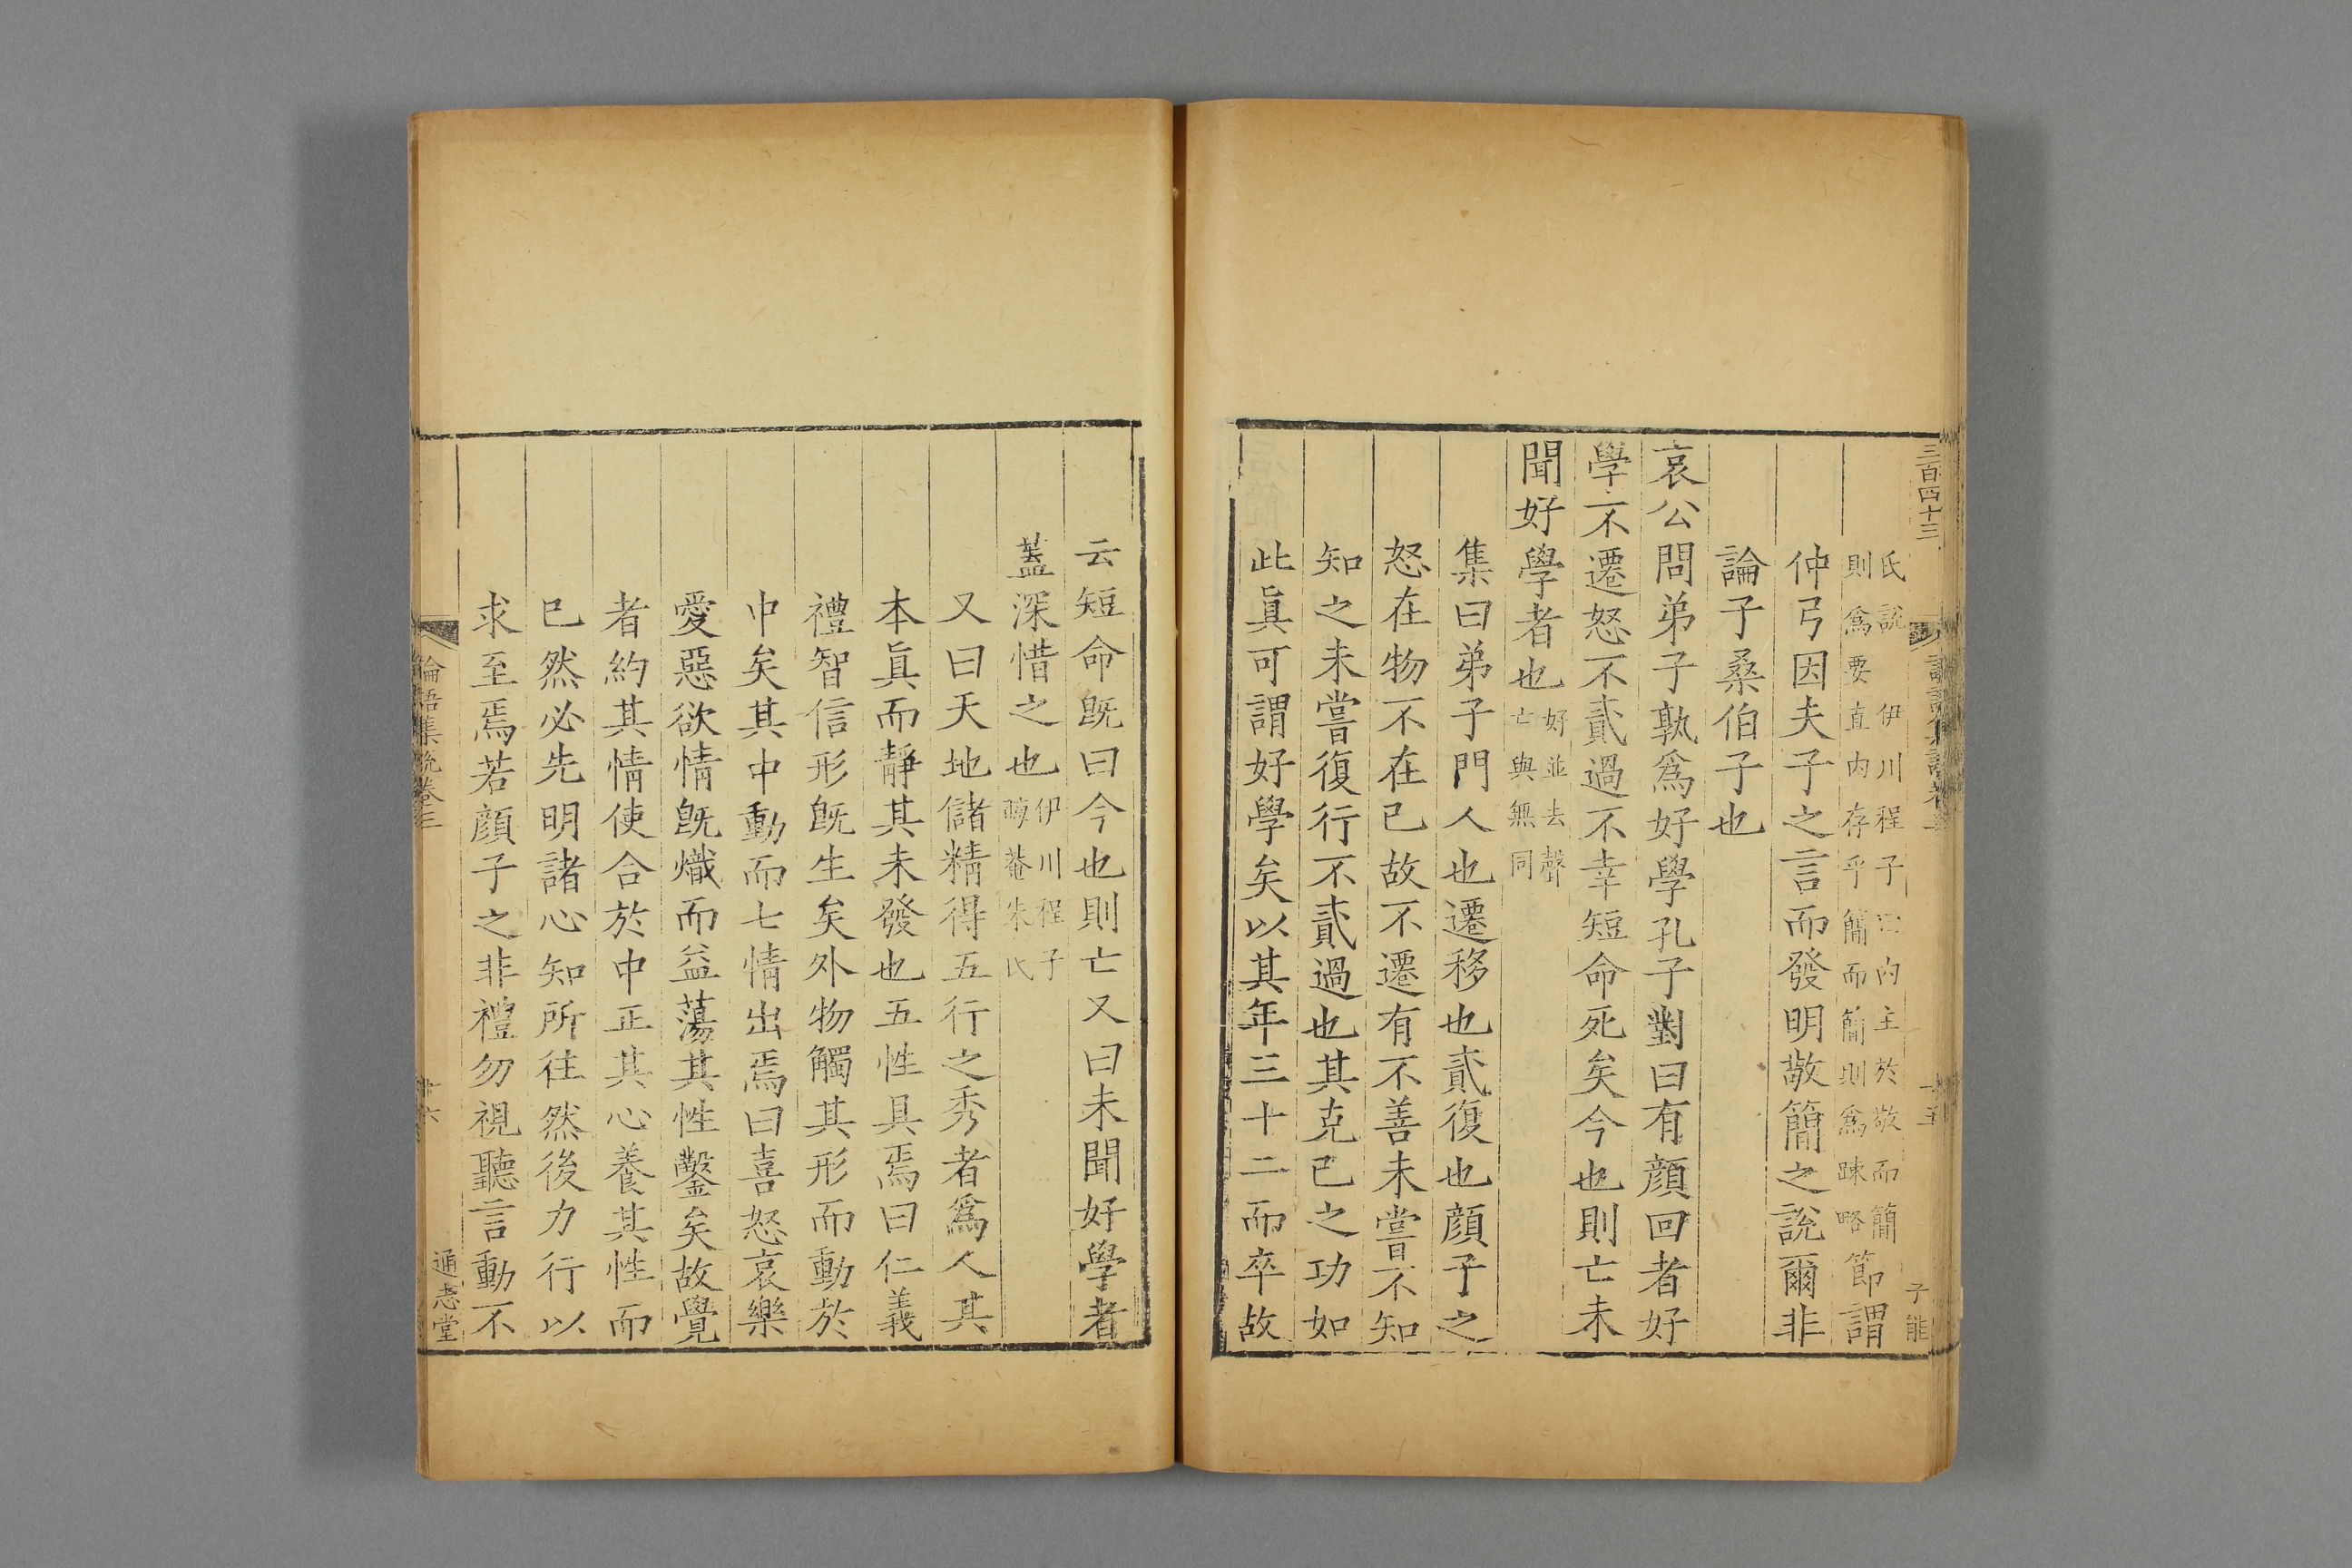 三百四十三
十五
子能
氏說 伊川程子曰內主於敬而簡
則爲要直內存乎簡而簡則爲踈略節謂
仲弓因夫子之言而發明敬簡之說爾非
論子桑伯子也
哀公問弟子孰爲好學孔子對曰有顔回者好
學不遷怒不貳過不幸短命死矣今也則亡未
聞好學者也好並去聲
亡與無同
集曰弟子門人也遷移也貳復也顔子之
怒在物不在己故不遷有不善未嘗不知
知之未嘗復行不貳過也其克己之功如
此眞可謂好學矣以其年三十二而卒故
云短命旣曰今也則亡又曰未聞好學者
蓋深惜之也伊川程子
晦菴朱氏
又曰天地儲精得五行之秀者爲人其
本眞而靜其未發也五性具焉曰仁義
禮智信形旣生矣外物觸其形而動於
中矣其中動而七情出焉曰喜怒哀樂
愛惡欲情旣熾而益蕩其性鑿矣故覺
者約其情使合於中正其心養其性而
已然必先明諸心知所往然後力行以
求至焉若顔子之非禮勿視聽言動不
論語集說卷三
十六
通志堂